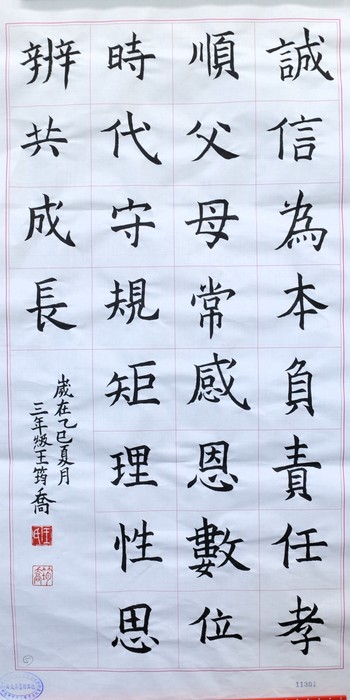 誠信為本負責任孝
順父母常感恩數位
時代守規矩理性思
辨共成長
歲在乙巳夏月
三年級王筠喬
11301